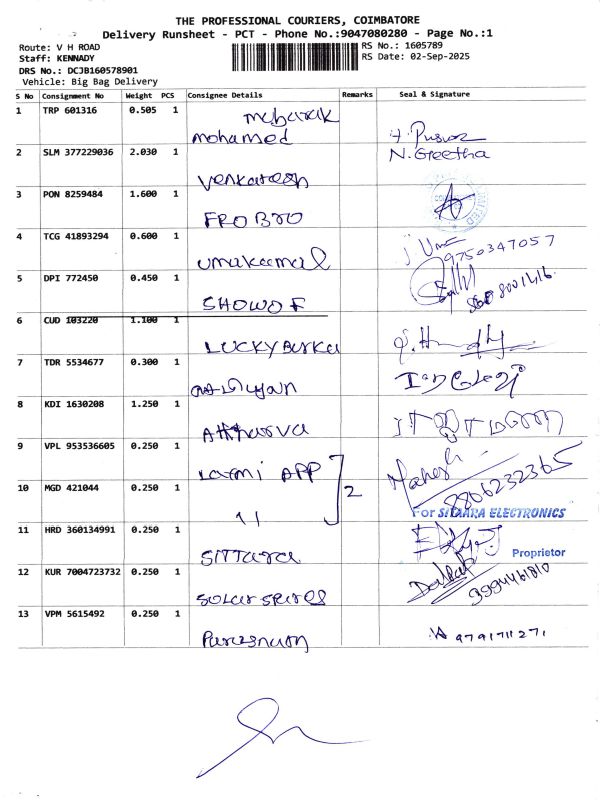 THE PROFESSIONAL COURIERS, COIMBATORE
Delivery Runsheet - PCT - Phone No.:9047080280 - Page No.:1
Route: V H ROAD
RS No.: 1605789
Staff: KENNADY
RS Date: 02-Sep-2025
DRS No.: DCJB160578901
Vehicle: Big Bag Delivery
S No Consignment No Weight PCS Consignee Details Remarks Seal & Signature
1 TRP 601316 0.505 1 mubarak
mohamed
2 SLM 377229036 2.030 1 N. Greetha
Venkatesh
3 PON 8259484 1.600 1
FROBRO
4 TCG 41893294 0.600 1 J Uma
umakamal 9750347057
5 DPI 772450 0.450 1
SHOWOF
6 CUD 103220 1.100 1
LUCKY Burka
7 TDR 5534677 0.300 1
8 KDI 1630208 1.250 1
Atharva
9 VPL 953536605 0.250 1 Mahesh
Laxmi APP 8806232365
10 MGD 421044 0.250 1 2
11 For SITAARA ELECTRONICS
11 HRD 360134991 0.250 1
SITTara Proprietor
12 KUR 7004723732 0.250 1
Solar spares
13 VPM 5615492 0.250 1 9791711271